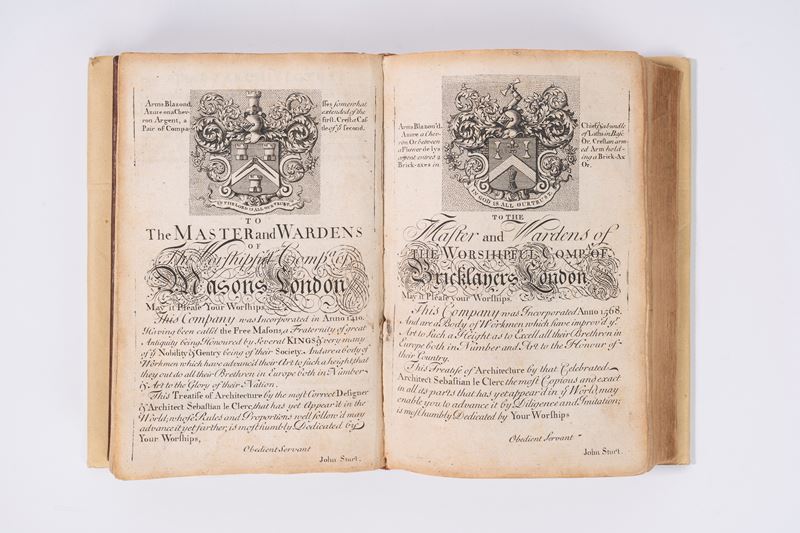 Arms Blazond,
Azure on a Chev-
ron Argent, a
Paie of Compa-
sses somewhat
extended of the
first. Crest a Cas-
tle of ye second.
IN THE LORD IS ALL OUR TRUST
TO
The MASTER and WARDENS
OF
The Worshipful Compa. of
Masons London
May it Please Your Worships,
This Company was Incorporated in Anno 1410.
Having been call'd the Free Masons, a Fraternity of great
Antiquity being Honoured by Several KINGS & very many
of ye Nobility & Gentry being of their Society. And are a body of
Workmen which have advanc'd their Art to such a height, that
they out do all their Brethren in Europe both in Number
& Art to the Glory of their Nation.
This Treatise of Architecture by the most Correct Designer
& Architect Sebastian le Clerc, that has yet Appear'd in the
World, whose Rules and Proportions well follow'd may
advance it yet farther, is most humbly Dedicated by
Your Worships,
Obedient Servant
John Sturt.
Arms Blazon'd.
Azure a Chev-
ron Or. between
a Flower de lys
argent entres 2
Brick-axes in
Chief & a bundle
of Laths in Base
Or. Crest an arm-
ed Arm hold-
ing a Brick-Ax
Or.
IN GOD IS ALL OUR TRUST
TO THE
Master and Wardens of
THE WORSHIPFUL COMPA. OF
Bricklayers London
May it Please your Worships.
This Company was Incorporated Anno 1568.
And are a Body of Workmen which have improv'd ye.
Art to Such a Height as to Excell all their Brethren in
Europe both in Number and Art to the Honour of
their Country.
This Treatise of Architecture by that Celebrated
Architect Sebastian le Clerc the most Copious and exact
in all its parts that has yet appear'd in ye World, may
enable you to advance it by Diligence and Imitation;
is most humbly Dedicated by Your Worships
Obedient Servant
John Sturt.